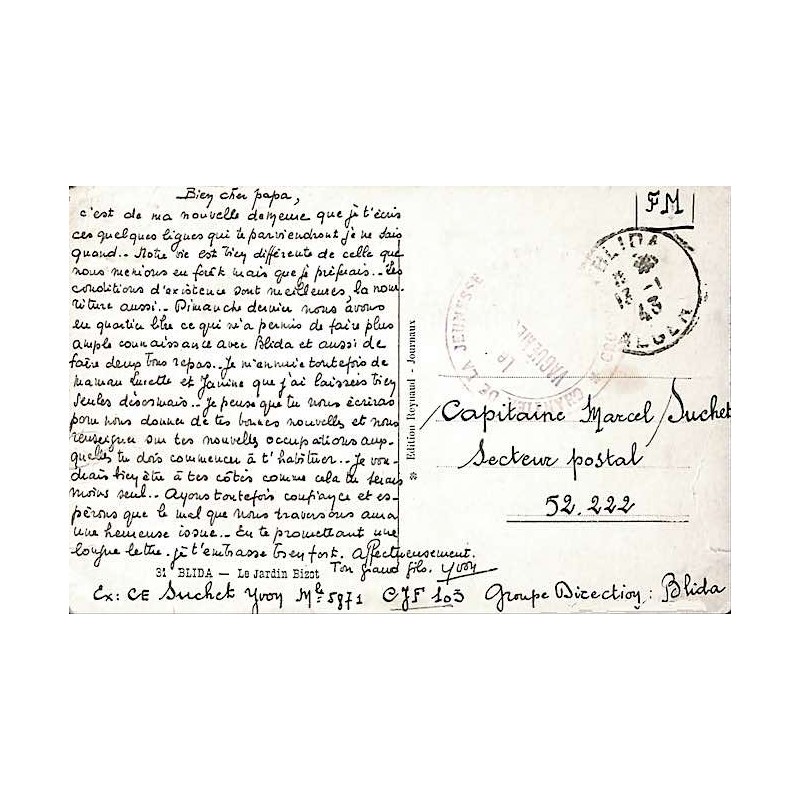 Bien cher papa,
c'est de ma nouvelle demeure que je t'écris
ces quelques lignes qui te parviendront je ne sais
quand.. Notre vie est bien différente de celle que
nous menions en forêt mais que je préférais.. Les
conditions d'existence sont meilleures, la nour-
riture aussi.. Dimanche dernier nous avons
eu quartier libre ce qui m'a permis de faire plus
ample connaissance avec Blida et aussi de
faire deux bons repas.. Je m'ennuie toutefois de
maman Lucette et Janine que j'ai laissées bien
seules désormais.. Je pense que tu nous écriras
pour nous donner de tes bonnes nouvelles et nous
renseigner sur tes nouvelles occupations aux-
quelles tu dois commencer à t'habituer.. Je vou-
drais bien être à tes côtés comme cela tu serais
moins seul.. Ayons toutefois confiance et es-
pérons que le mal que nous traversons aura
une heureuse issue.. En te promettant une
longue lettre. je t'embrasse bien fort. Affectueusement.
Ton grand fils. Yvon
31 BLIDA — Le Jardin Bizot
Ex: CE Suchet Yvon Mle 5871 CJF 103 Groupe Direction: Blida
✽ Edition Reynaud - Journaux
FM
BLIDA
43
ALGER
DE LA JEUNESSE
Capitaine Marcel Suchet
Secteur postal
52.222